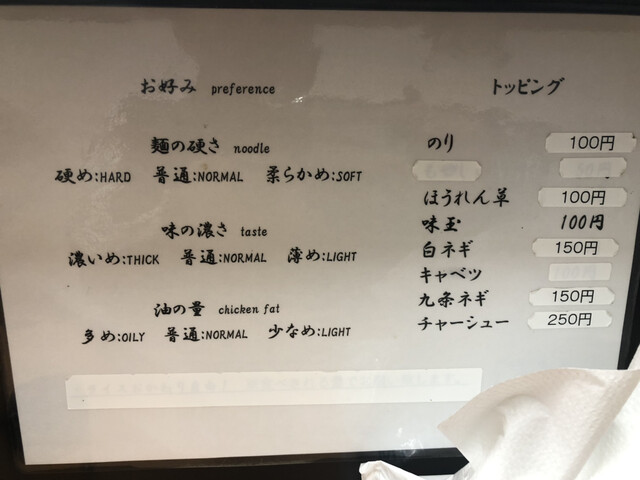 お好み preference
麺の硬さ noodle
硬め:HARD 普通:NORMAL 柔らかめ:SOFT
味の濃さ taste
濃いめ:THICK 普通:NORMAL 薄め:LIGHT
油の量 chicken fat
多め:OILY 普通:NORMAL 少なめ:LIGHT
トッピング
のり 100円
ほうれん草 100円
味玉 100円
白ネギ 150円
キャベツ
九条ネギ 150円
チャーシュー 250円